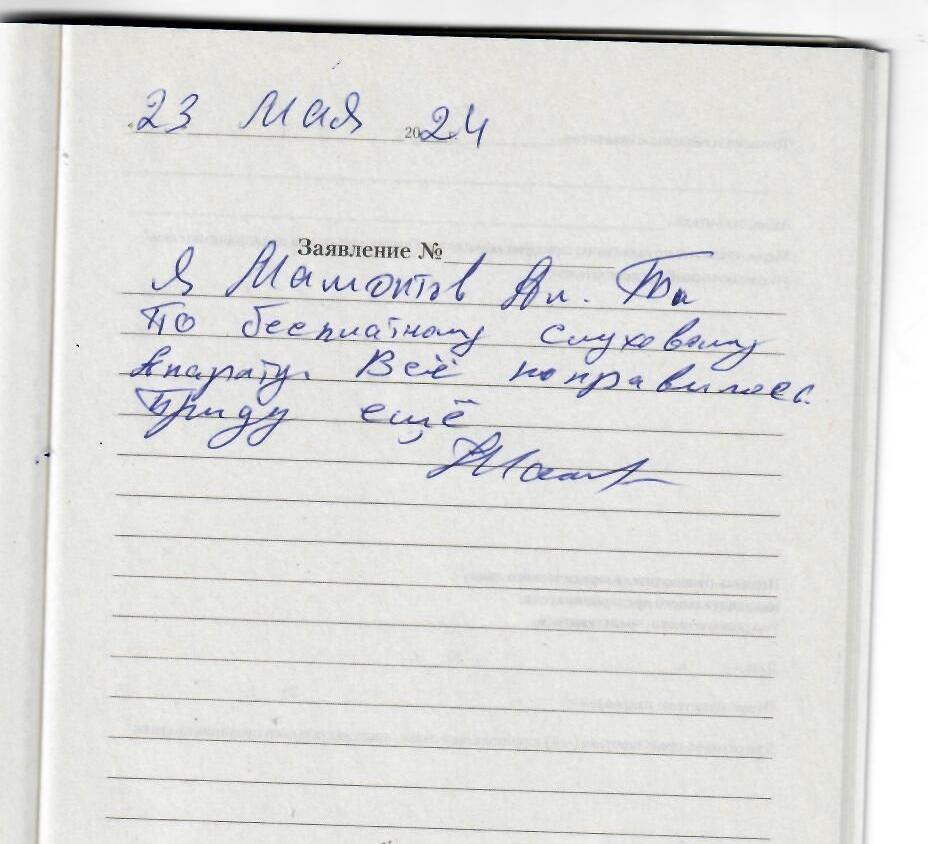 23 Мая 2024
Заявление №
Я Мамонтов Ал.
По бесплатному слуховому
Апарату. Всё понравилось.
Приду ещё